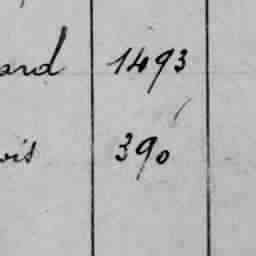 ard 1493
ois 390